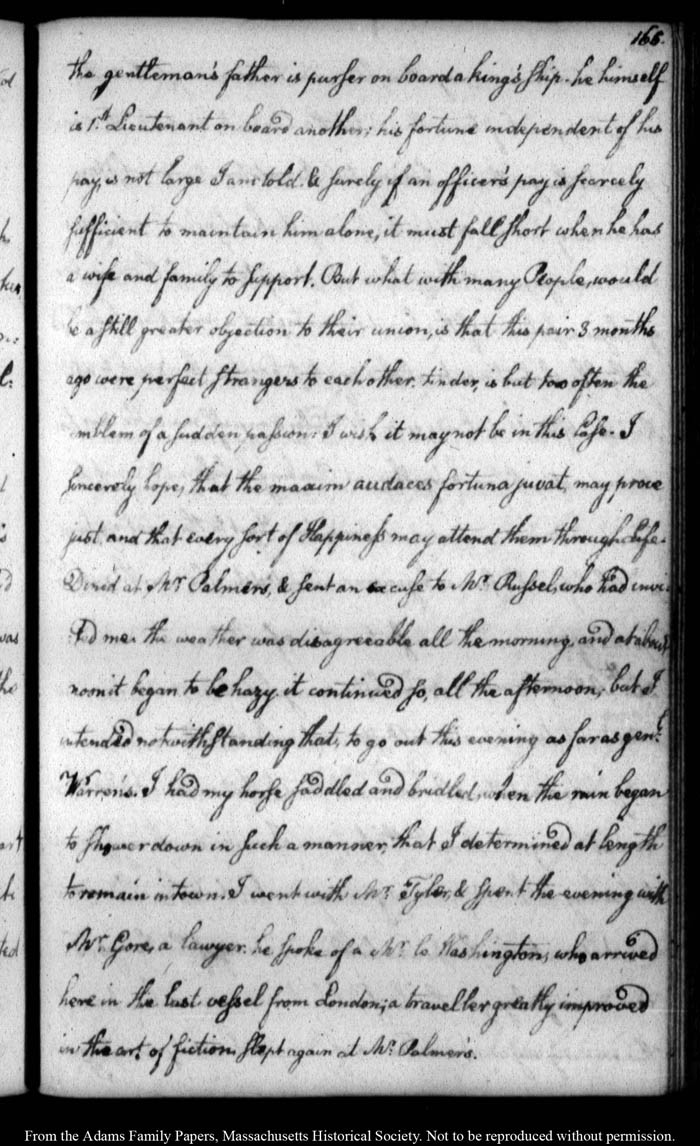 165.
the gentleman's father is purser on board a king's ship. he himself
is 1.st Lieutenant on board another; his fortune independent of his
pay, is not large I am told. & surely if an officer's pay is scarcely
sufficient to maintain him alone, it must fall short when he has
a wife and family to support. But what with many People, would
be a still greater objection to their union, is that this pair 3 months
ago were perfect strangers to each other. tinder, is but too often the
emblem of a sudden passion: I wish it may not be in this Case. I
sincerely hope, that the maxim audaces fortuna juvat, may prove
just, and that every sort of Happiness may attend them through Life.
Din'd at Mr. Palmer's, & sent an excuse to Mr. Russel, who had invi
ted me. the weather was disagreeable all the morning, and at about
noon it began to be hazy. it continued so, all the afternoon, but I
intended notwithstanding that, to go out this evening as far as genl.
Warren's. I had my horse saddled and bridled, when the rain began
to shower down in such a manner, that I determined at length
to remain in town. I went with Mr. Tyler, & spent the evening with
Mr. Gore, a lawyer. he spoke of a Mr. Washington, who arrived
here in the last vessel from London; a traveller greatly improved
in the art of fiction. Slept again at Mr. Palmer's.
From the Adams Family Papers, Massachusetts Historical Society. Not to be reproduced without permission.